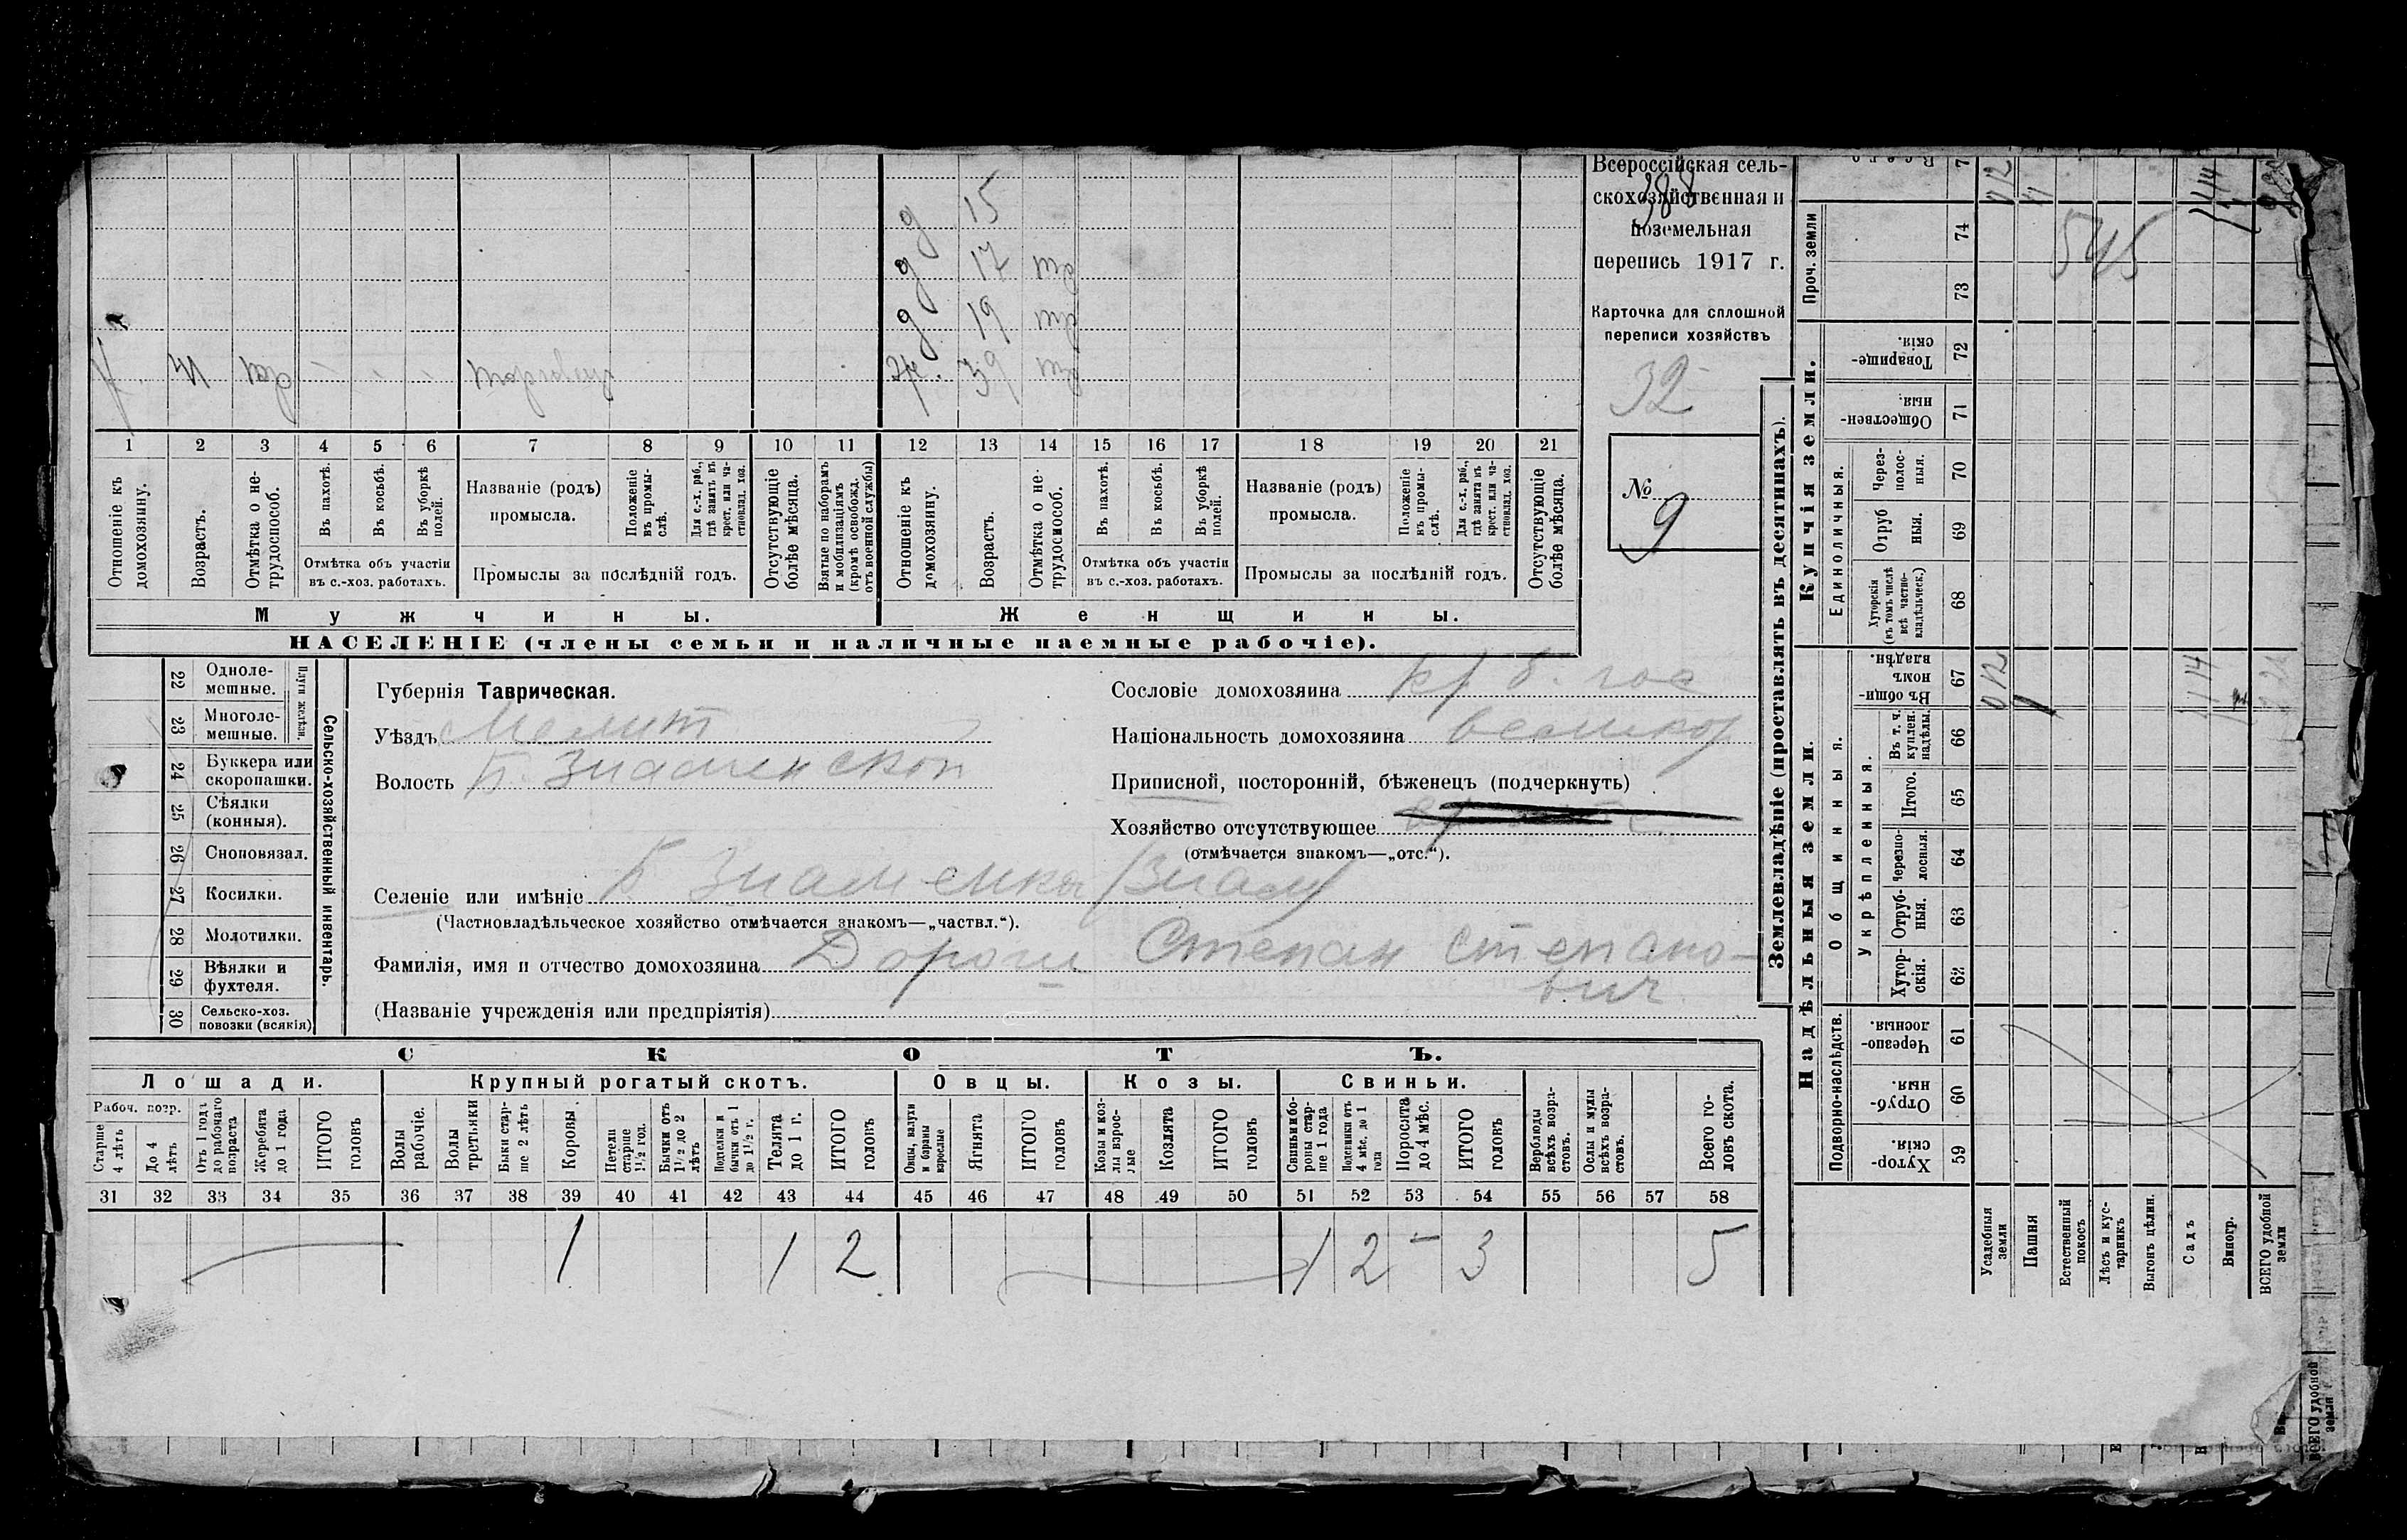 Всероссійская сель-
скохозяйственная и
поземельная
перепись 1917 г.
388
Карточка для сплошной
переписи хозяйствъ
32
№
9
д 15
д 17 нд
д 19 нд
ж. 39 нд
1 2 3 4 5 6 7 8 9 10 11 12 13 14 15 16 17 18 19 20 21
Отношеніе къ домохозяину.
Возрастъ.
Отмѣтка о не-трудоспособ.
Въ пахотѣ.
Въ косьбѣ.
Въ уборкѣ полей.
Отмѣтка объ участіи
въ с.-хоз. работахъ.
Названіе (родъ)
промысла.
Положеніе въ промы-слѣ.
Для с.-х. раб., гдѣ занятъ въ крест. или ча-стновлад. хоз.
Промыслы за послѣдній годъ.
Отсутствующіе болѣе мѣсяца.
Взятые по наборамъ и мобилизаціямъ (кромѣ освобожд. отъ военной службы)
Отношеніе къ домохозяину.
Возрастъ.
Отмѣтка о не-трудоспособ.
Въ пахотѣ.
Въ косьбѣ.
Въ уборкѣ полей.
Отмѣтка объ участіи
въ с.-хоз. работахъ.
Названіе (родъ)
промысла.
Положеніе въ промы-слѣ.
Для с.-х. раб., гдѣ занята въ крест. или ча-стновлад. хоз.
Промыслы за послѣдній годъ.
Отсутствующіе болѣе мѣсяца.
Мужчины.
Женщины.
НАСЕЛЕНІЕ (члены семьи и наличные наемные рабочіе).
Сельско-хозяйственный инвентарь.
Плуги желѣзн.
22 Одноле-мешные.
23 Многоле-мешные.
24 Буккера или скоропашки.
25 Сѣялки (конныя).
26 Сноповязал.
27 Косилки.
28 Молотилки.
29 Вѣялки и фухтеля.
30 Сельско-хоз. повозки (всякія)
Губернія Таврическая.
Уѣздъ Мелит
Волость Б. Знаменской
Сословіе домохозяина кр. б. гос
Національность домохозяина великор
Приписной, посторонній, бѣженецъ (подчеркнуть)
Хозяйство отсутствующее
(отмѣчается знакомъ—„отс.“).
Селеніе или имѣніе Б. Знаменка (Знам)
(Частновладѣльческое хозяйство отмѣчается знакомъ—„частвл.“).
Фамилія, имя и отчество домохозяина Степан Степано-
вич.
(Названіе учрежденія или предпріятія)
СКОТЪ.
Лошади.
Крупный рогатый скотъ.
Овцы.
Козы.
Свиньи.
Рабоч. возр.
Старше 4 лѣтъ
До 4 лѣтъ
Отъ 1 года до рабочаго возраста
Жеребята до 1 года
ИТОГО головъ
Волы рабочіе.
Волы третьяки
Быки стар-ше 2 лѣтъ
Коровы
Нетели старше 1½ год.
Бычки отъ 1½ до 2 лѣтъ
Подтелки и бычки отъ 1 до 1½ г.
Телята до 1 г.
ИТОГО головъ
Овцы, валухи и бараны взрослые
Ягнята
ИТОГО головъ
Козы и коз-лы взрос-лые
Козлята
ИТОГО головъ
Свиньи и бо-ровы стар-ше 1 года
Подсвинки отъ 4 мѣс. до 1 года
Поросята до 4 мѣс.
ИТОГО головъ
Верблюды всѣхъ возра-стовъ.
Ослы и мулы всѣхъ возра-стовъ.
Всего го-ловъ скота.
31 32 33 34 35 36 37 38 39 40 41 42 43 44 45 46 47 48 49 50 51 52 53 54 55 56 57 58
1 1 2 1 2 – 3 5
Землевладѣніе (проставлять въ десятинахъ).
Надѣльныя земли.
Купчія земли.
Проч. земли
Подворно-наслѣдств.
Общинныя.
Укрѣпленныя.
Единоличныя.
Хутор-скія. 59
Отруб-ныя. 60
Черезпо-лосныя. 61
Хутор-скія. 62
Отруб-ныя. 63
Черезпо-лосныя. 64
Итого. 65
Въ т. ч. куплен. надѣлы. 66
Въ общин-номъ владѣн. 67
Хуторскія (въ томъ числѣ всѣ частно-владѣльческ.) 68
Отруб-ныя. 69
Через-полос-ныя. 70
Обществен-ныя. 71
Товарище-скія. 72
73
74
Всего
545
Усадебныя земли
Пашня
Естественный покосъ
Лѣсъ и кус-тарникъ
Выгонъ цѣлин.
Садъ
Виногр.
ВСЕГО удобной земли
ВСЕГО удобной земли